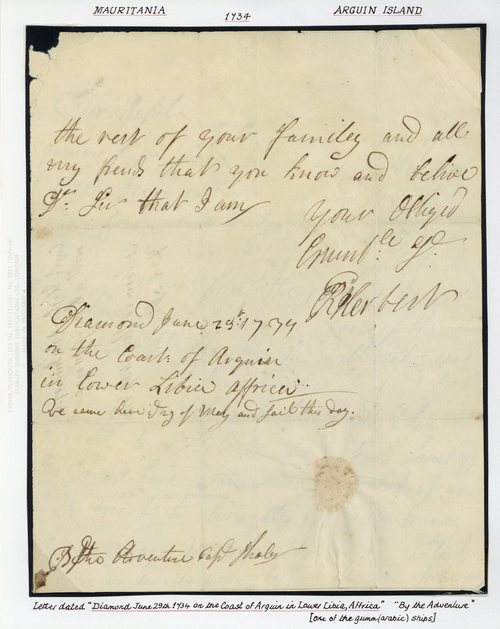 MAURITANIA
1734
ARGUIN ISLAND
the rest of your familey and all
my friends that you know and belive
Dr. Sir that I am
your Obliged
Humble
RHerbert
Diamond June 29th: 1734
on the Coast: of Arguin
in Lower Libia affrica
We came here day of May and sail this day.
the Adventure Capt
Letter dated "Diamond June 29th 1734 on the Coast of Arguin in Lower Libia, Affrica" "By the Adventure"
[one of the gumm (arabic) ships]